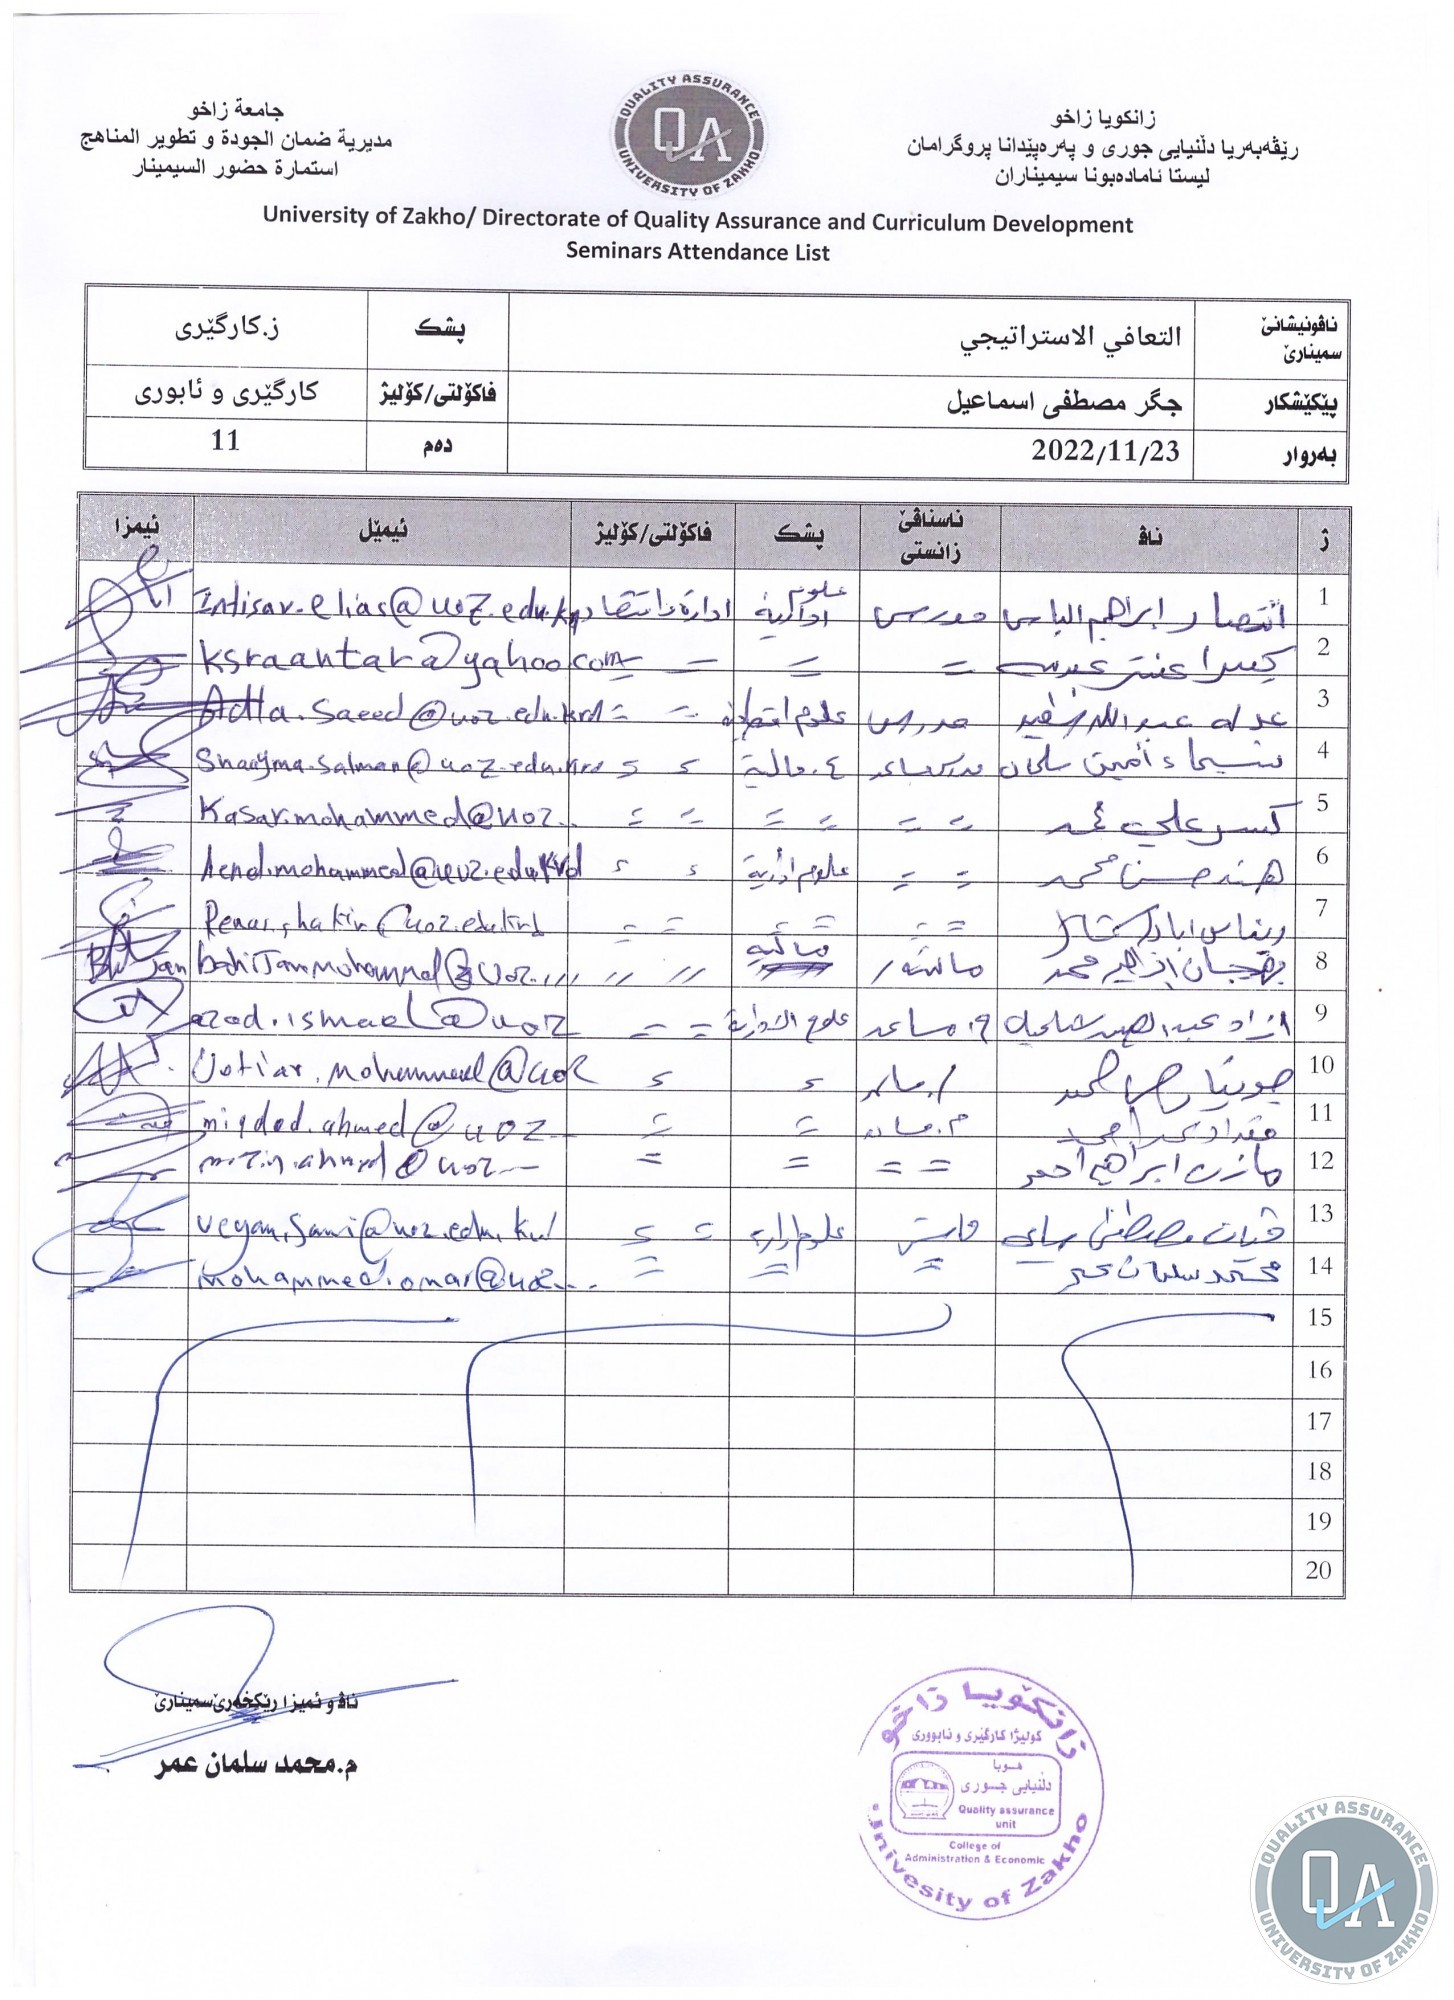 زانكويا زاخو
رێڤەبەريا دڵنيايى جورى و پەرەپێدانا پروگرامان
ليستا ئامادەبونا سيميناران
QUALITY ASSURANCE
QA
UNIVERSITY OF ZAKHO
جامعة زاخو
مديرية ضمان الجودة و تطوير المناهج
استمارة حضور السيمينار
University of Zakho/ Directorate of Quality Assurance and Curriculum Development
Seminars Attendance List
ناڤونيشانێ سمينارێ التعافي الاستراتيجي پشك ز.كارگێرى
پێكێشكار جگر مصطفى اسماعيل فاكۆلتى/كۆليژ كارگێرى و ئابورى
بەروار 2022/11/23 دەم 11
ژ ناڤ ناسناڤێ زانستى پشك فاكۆلتى/كۆليژ ئيمێل ئيمزا
1 انتصار ابراهيم الياس مدرس علوم ادارية ادارة واقتصاد Intisar.elias@uoz.edu.krd
2 كسرا عنتر = = = ksraantar@yahoo.com
3 عدله عبدالله سعيد مدرس علوم اقتصادية = = Adla.Saeed@uoz.edu.krd
4 شيماء أمين سلمان ع.مالية Shaayma.salman@uoz.edu.krd
5 كسر علي محمد = = = = = = Kasar.mohammed@uoz..
6 هند حسن محمد = = علوم ادارية hend.mohammed@uoz.edu.krd
7 = = = = Renas.shakir@uoz.edu.krd
8 بهجان ابراهيم محمد مالية
9 ازاد م.مساعد علوم الادارية = = azad.ismael@uoz
10 محمد
11 مقداد = = miqdad.ahmed@uoz--
12 مازن ابراهيم احمد = = = =
13 ڤيان مصطفى سامي علوم ادارية veyan.Sami@uoz.edu.krd
14 محمد سلمان عمر = = = mohammed.omar@uoz...
15
16
17
18
19
20
ناڤ و ئميزا رێكخەرێ سمينارێ
م.محمد سلمان عمر
زانكۆيـا زاخۆ
كوليژا كارگێرى و ئابوورى
هـوبـا
دڵنيايى جـورى
Quality assurance
unit
College of
Administration & Economic
Univesity of Zakho
QUALITY ASSURANCE
QA
UNIVERSITY OF ZAKHO